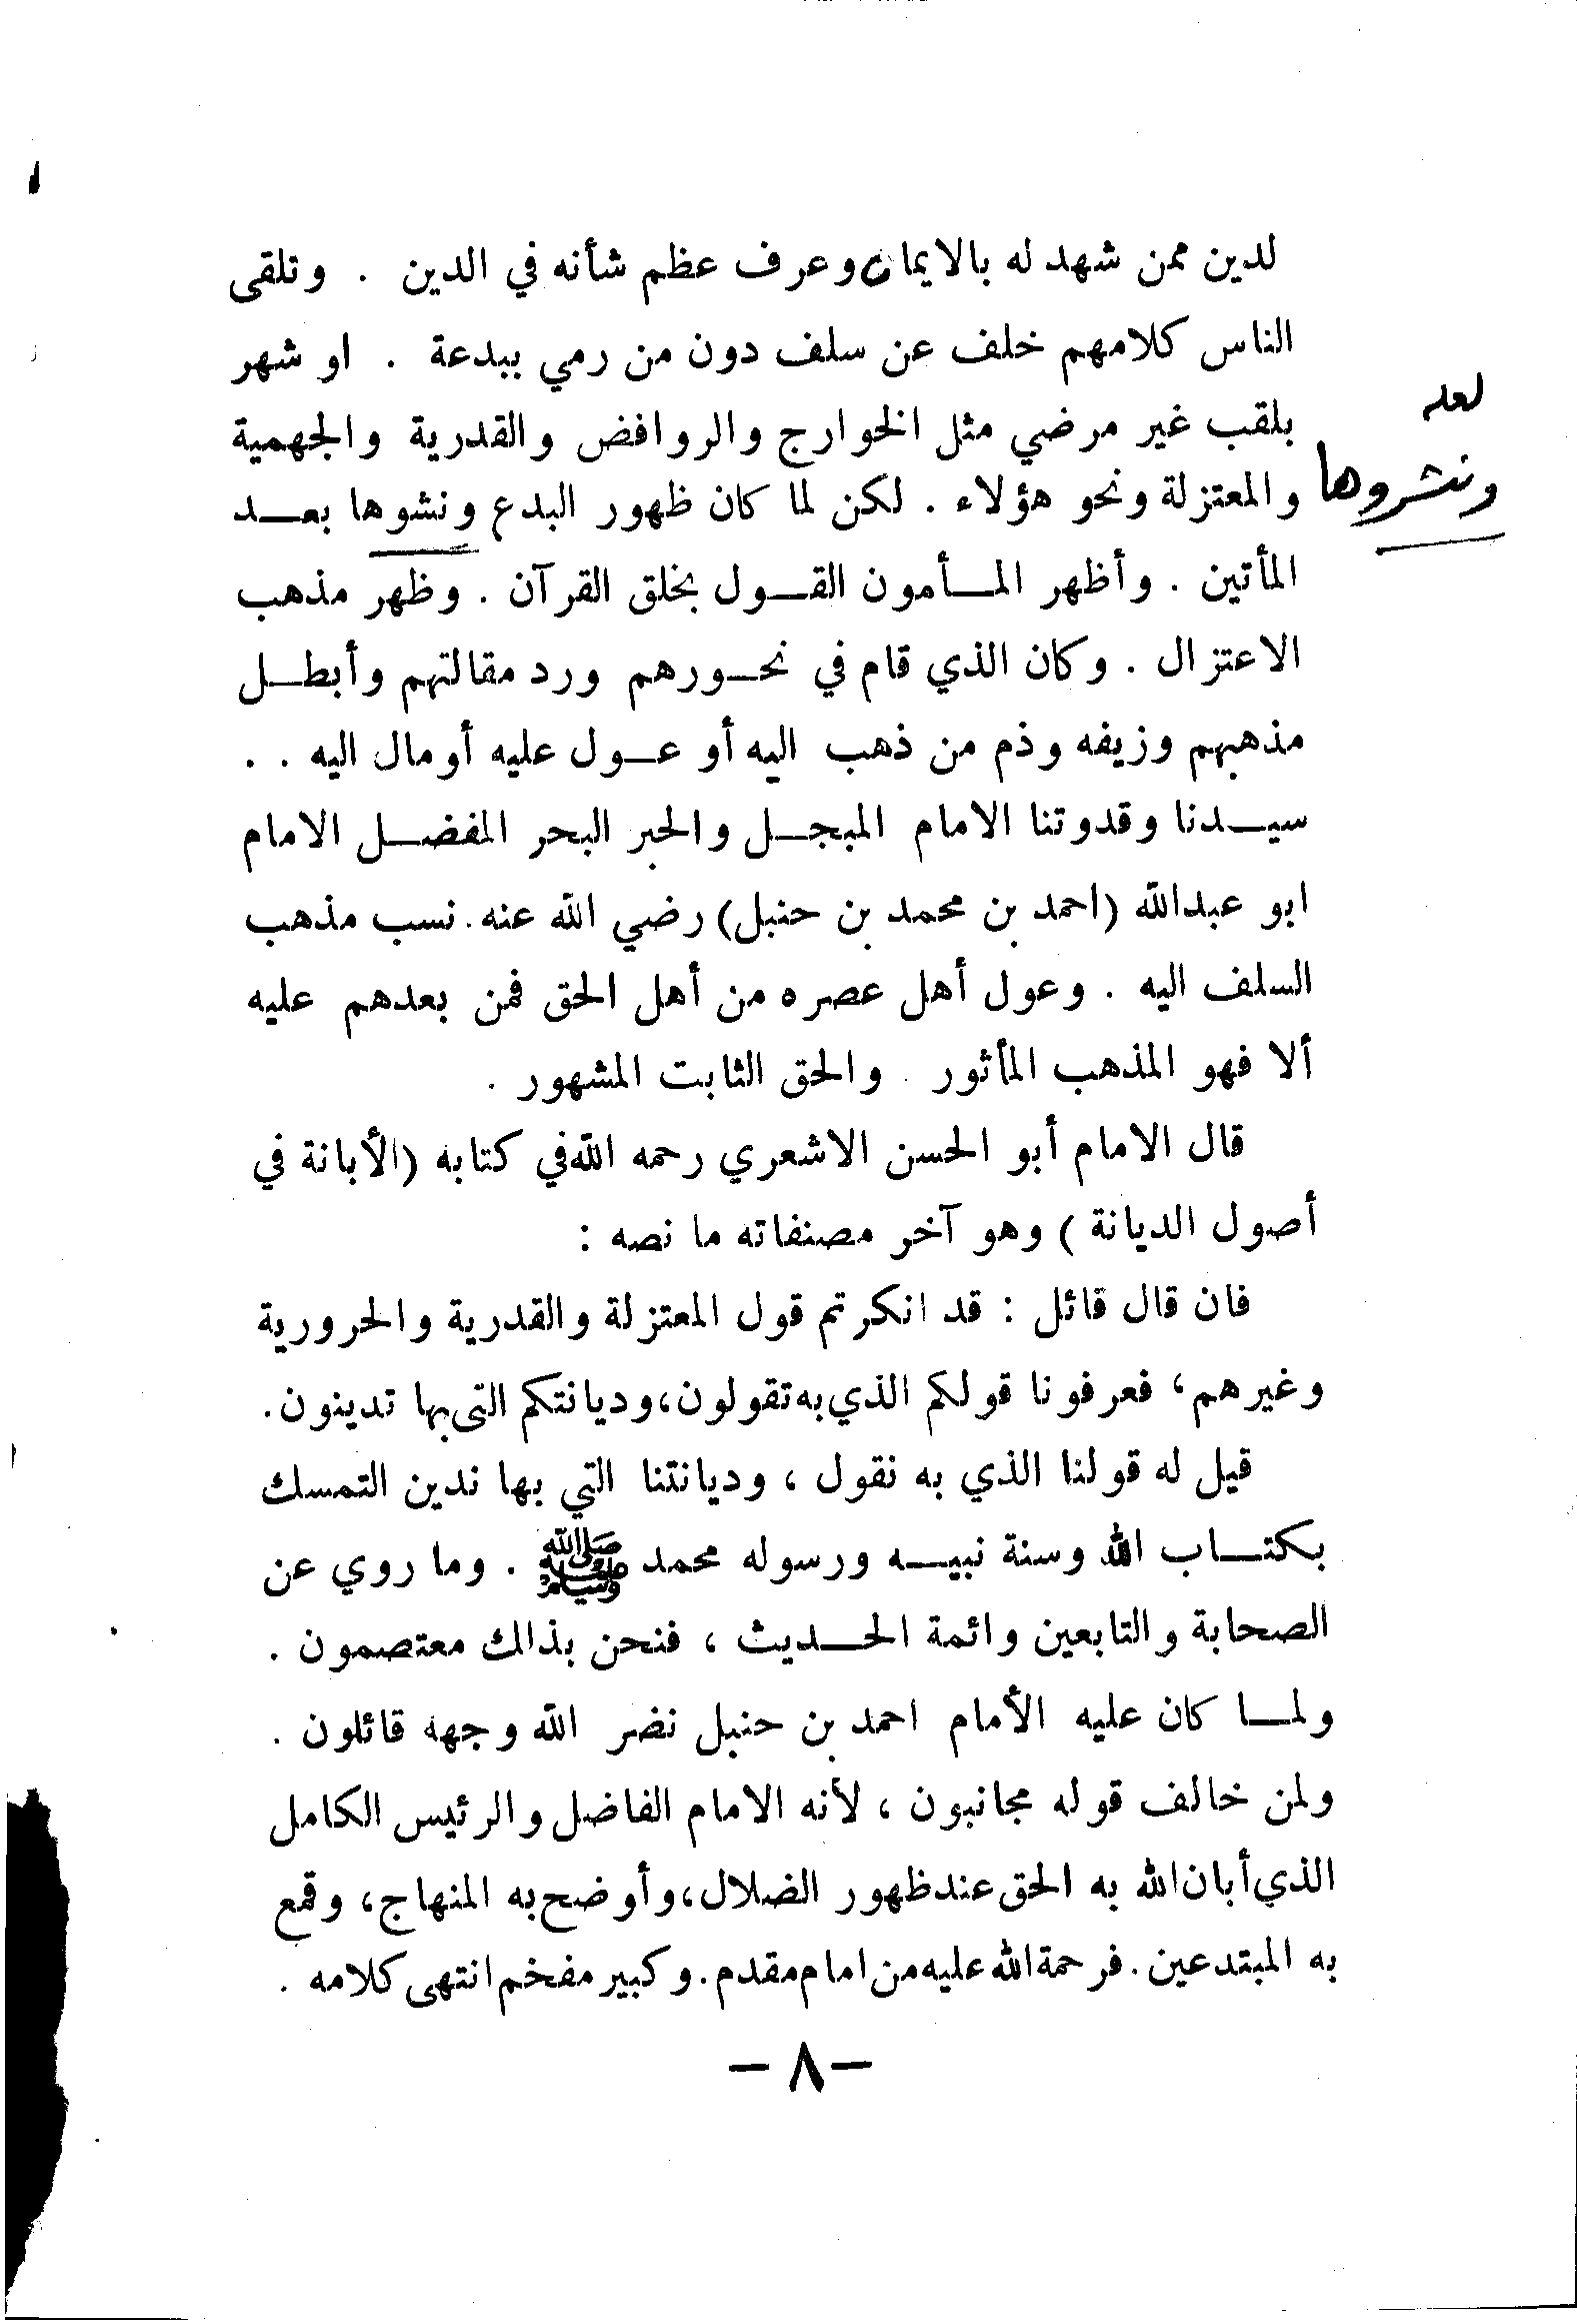 لدين ممن شهد له بالايمان وعرف عظم شأنه في الدين . وتلقى
الناس كلامهم خلف عن سلف دون من رمي ببدعة . او شهر
بلقب غير مرضي مثل الخوارج والروافض والقدرية والجهمية
والمعتزلة ونحو هؤلاء . لكن لما كان ظهور البدع ونشوها بعد
لعله
ونشروها
المأتين . وأظهر المأمون القول بخلق القرآن . وظهر مذهب
الاعتزال . وكان الذي قام في نحورهم ورد مقالتهم وأبطل
مذهبهم وزيفه وذم من ذهب اليه أو عول عليه أو مال اليه . .
سيدنا وقدوتنا الامام المبجل والحبر البحر المفضل الامام
ابو عبدالله (احمد بن محمد بن حنبل) رضي الله عنه. نسب مذهب
السلف اليه . وعول أهل عصره من أهل الحق فمن بعدهم عليه
ألا فهو المذهب المأثور . والحق الثابت المشهور .
قال الامام أبو الحسن الاشعري رحمه الله في كتابه (الأبانة في
أصول الديانة ) وهو آخر مصنفاته ما نصه :
فان قال قائل : قد انكرتم قول المعتزلة والقدرية والحرورية
وغيرهم، فعرفونا قولكم الذي به تقولون، وديانتكم التي بها تدينون.
قيل له قولنا الذي به نقول ، وديانتنا التي بها ندين التمسك
بكتاب الله وسنة نبيه ورسوله محمد ﷺ . وما روي عن
الصحابة والتابعين وائمة الحديث ، فنحن بذالك معتصمون .
ولما كان عليه الأمام احمد بن حنبل نضر الله وجهه قائلون .
ولمن خالف قوله مجانبون ، لأنه الامام الفاضل والرئيس الكامل
الذي أبان الله به الحق عند ظهور الضلال، وأوضح به المنهاج، وقمع
به المبتدعين. فرحمة الله عليه من امام مقدم. وكبير مفخم انتهى كلامه .
— ٨ —